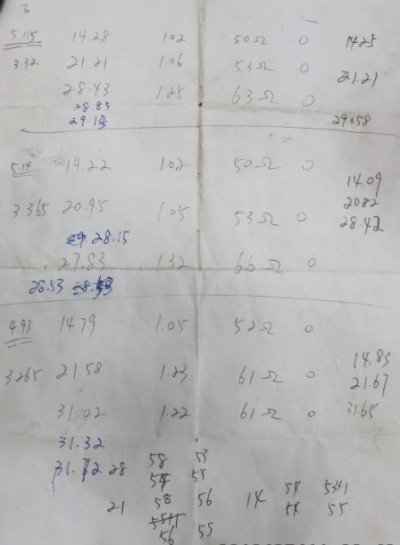 5.115 14.28 1.02 50Ω 0 14.25
3.32 21.21 1.06 53Ω 0 21.21
28.43 1.25 63Ω 0
28.85
29.19 29.58
5.14 14.22 1.02 50Ω 0 14.09
3.365 20.95 1.05 53Ω 0 20.82
28.15 28.42
27.83 1.32 66Ω 0
26.53
4.93 14.79 1.05 52Ω 0 14.83
3.265 21.58 1.23 61Ω 0 21.67
31.02 1.22 61Ω 0 31.65
31.32
31.72 28 58 53
55
21 58 56 14 54
55
56 55